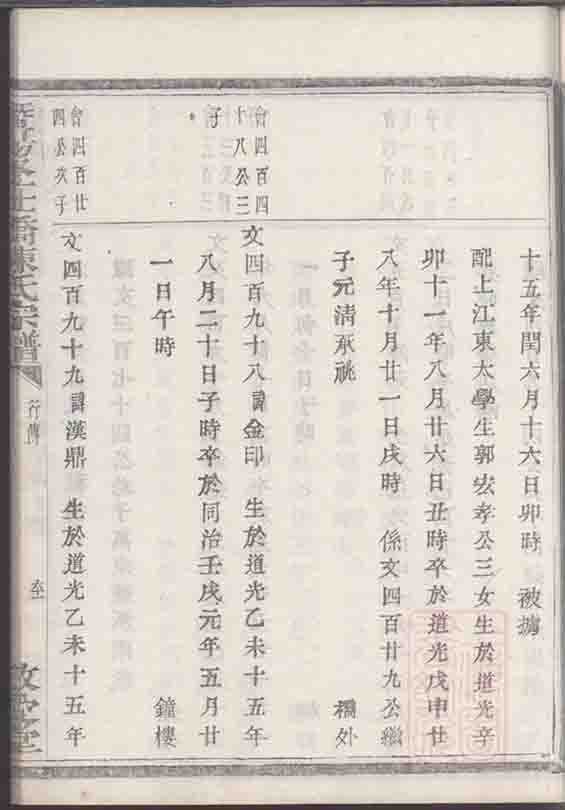 十五年閏六月十六日卯時　被擄
配上江東大學生郭宏孝公三女生於道光辛
卯十一年八月廿六日丑時卒於道光戊申廿
八年十月廿一日戌時　係文四百廿九公繼
子元清承祧　欄外
會四百四
十八公三
子
文四百九十八諱金印　生於道光乙未十五年
八月二十日子時卒於同治壬戌元年五月廿
一日午時　鐘樓
會四百廿
四公次子
文四百九十九諱漢鼎　生於道光乙未十五年
橋陳氏宗譜
行傳